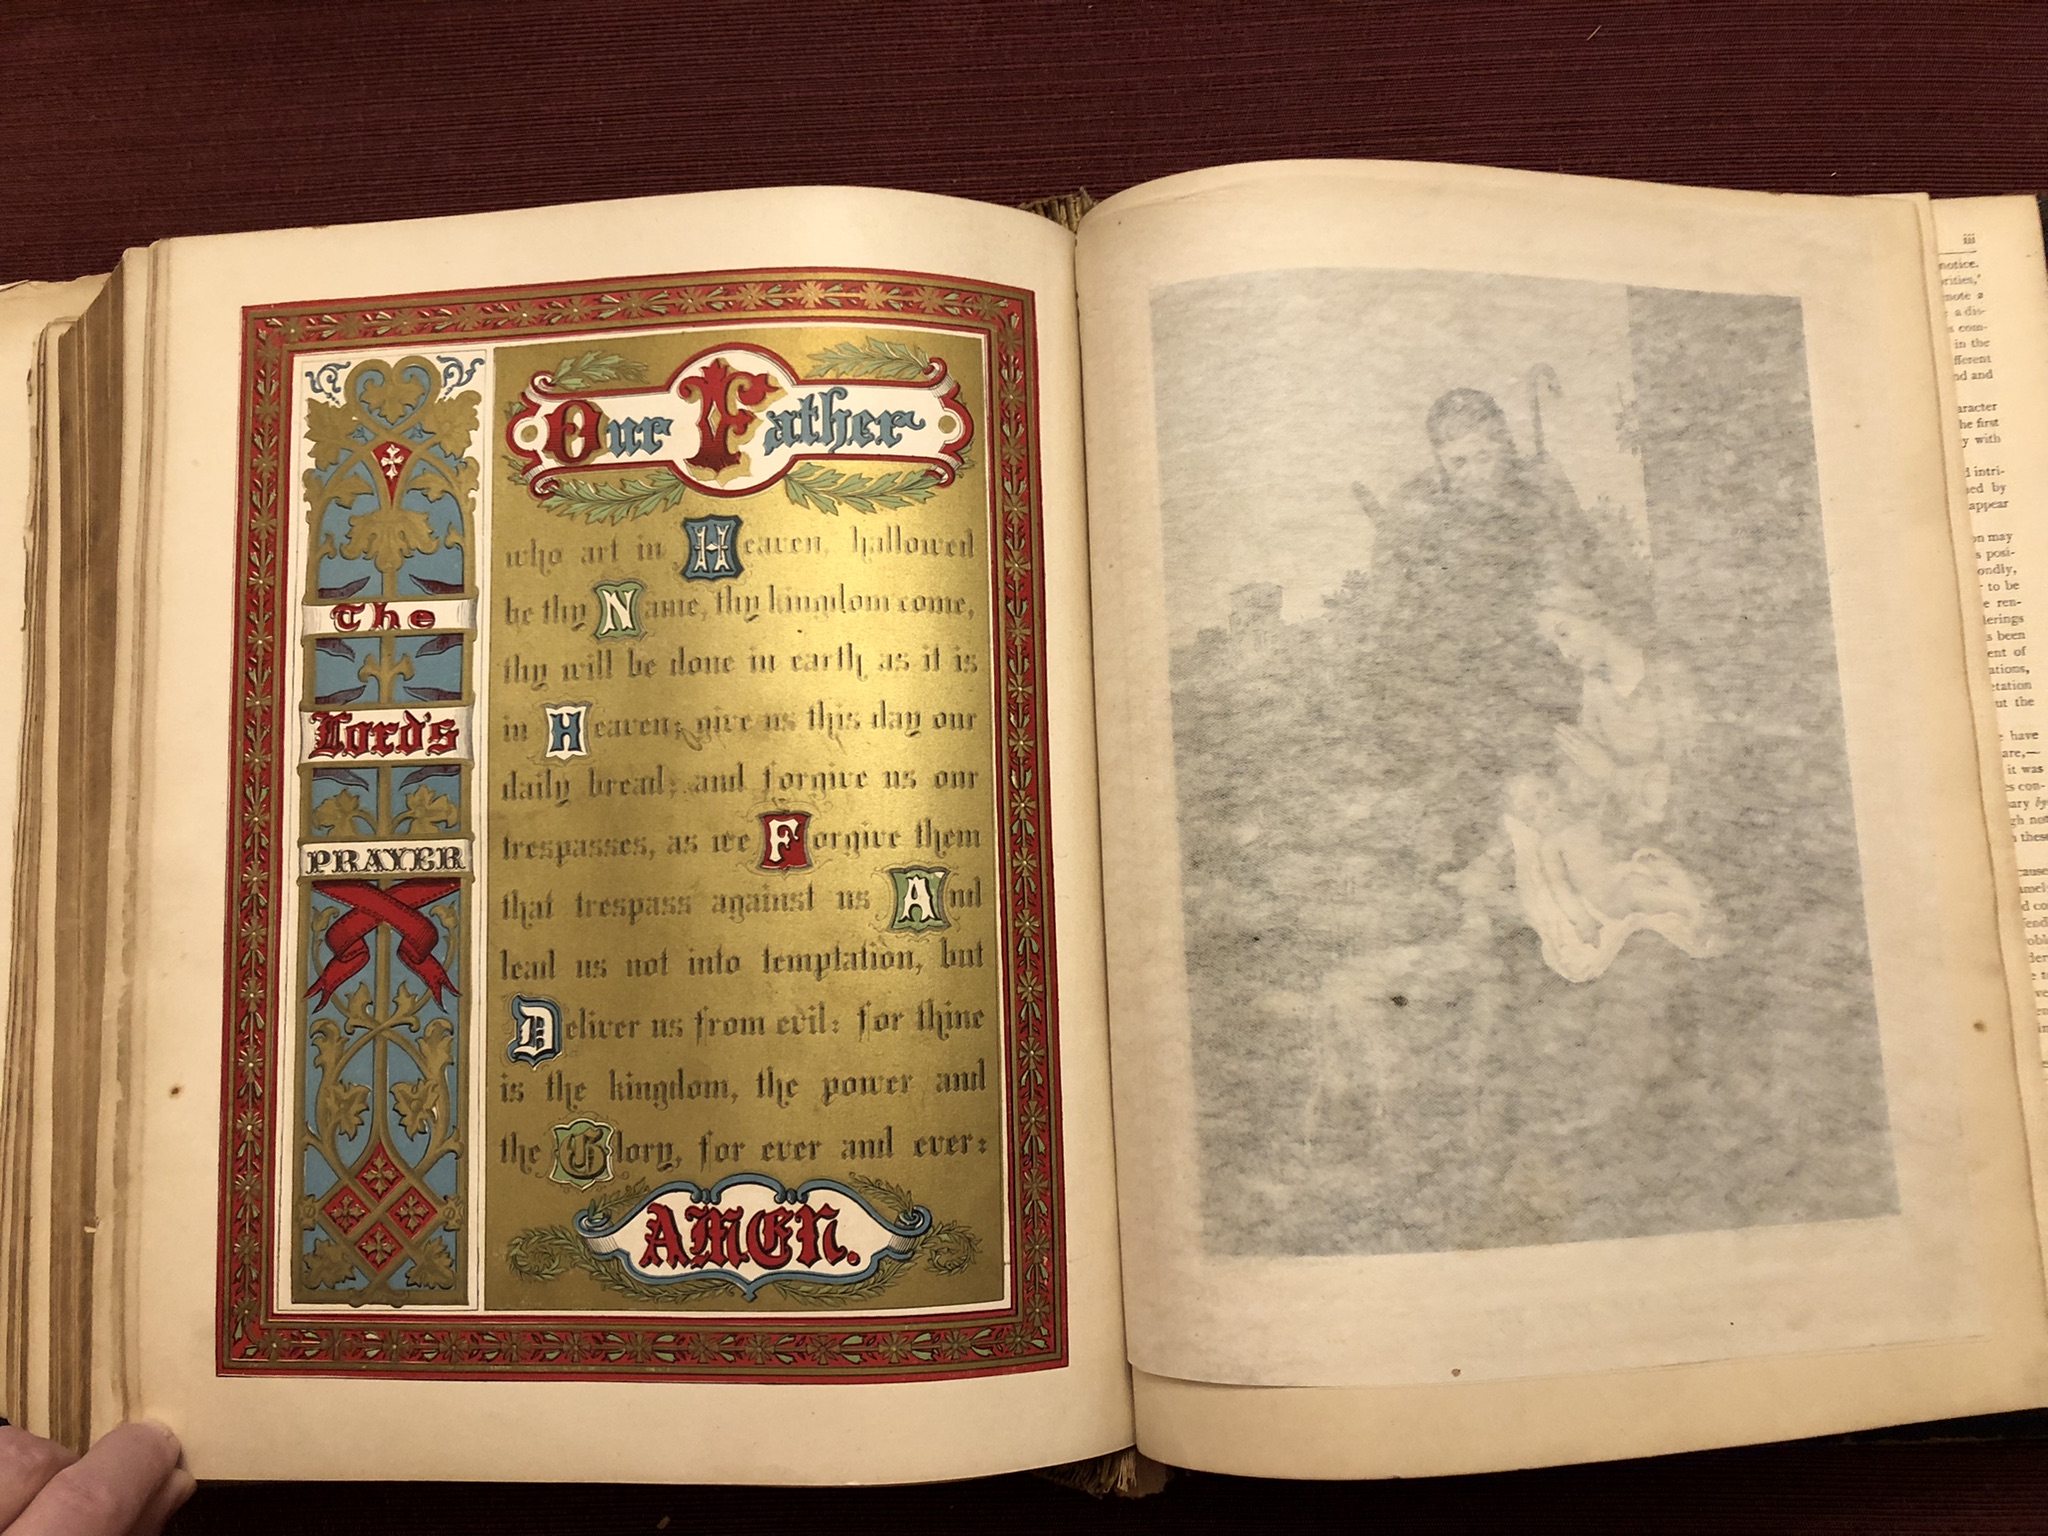 The
Lord's
PRAYER
Our Father
who art in Heaven, hallowed
be thy Name, thy kingdom come,
thy will be done in earth, as it is
in Heaven; give us this day our
daily bread; and forgive us our
trespasses, as we Forgive them
that trespass against us And
lead us not into temptation, but
Deliver us from evil: for thine
is the kingdom, the power and
the Glory, for ever and ever:
AMEN.
iii
notice.
note a
a dis-
com-
in the
and
the first
with
by
appear
may
posi-
to be
ren-
been
of
the
have
are,—
it was
con-
by
not
these